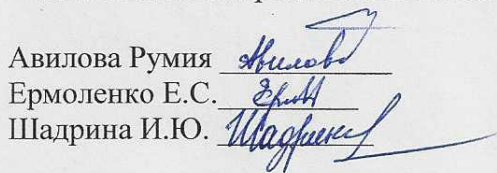 Авилова Румия Авилова
Ермоленко Е.С.
Шадрина И.Ю. Шадрина